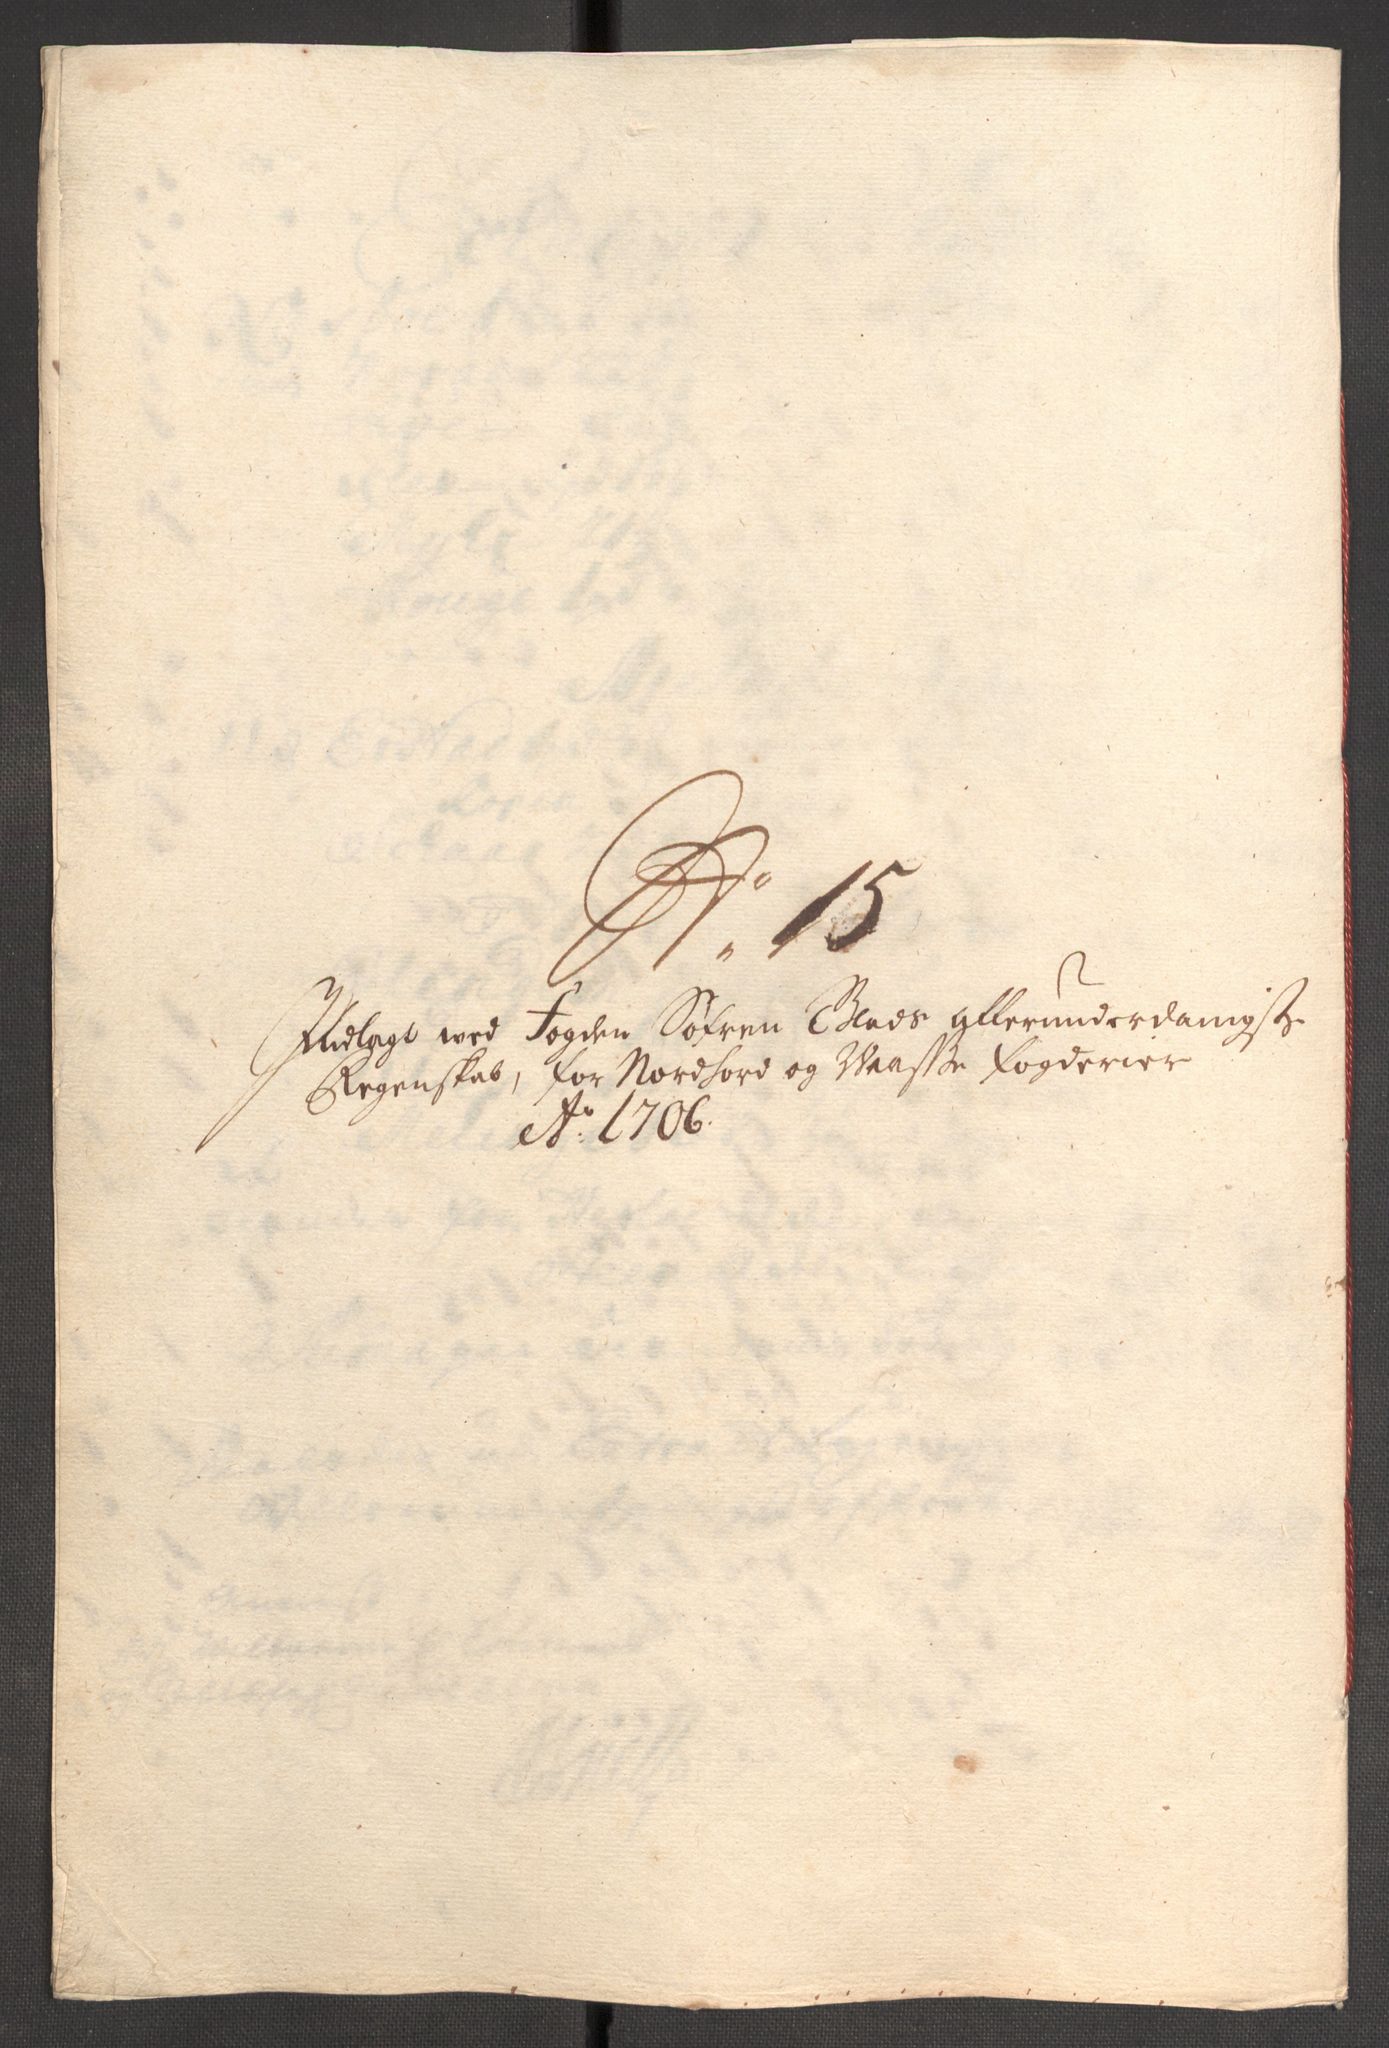 N°. 15
Indlagt wed Fogden Søfren Blads allerunderdanigste
Regenskab, for Nordhord og Waasse fogderier
A°. 1706.